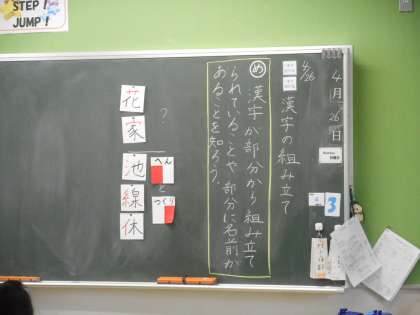 STEP!
JUMP!
4月26日
3
4/26
漢字の組み立て
め 漢字が部分から組み立て
られていることや部分に名前が
あることを知ろう。
花
家
?
池
線
休
へん
と
つくり